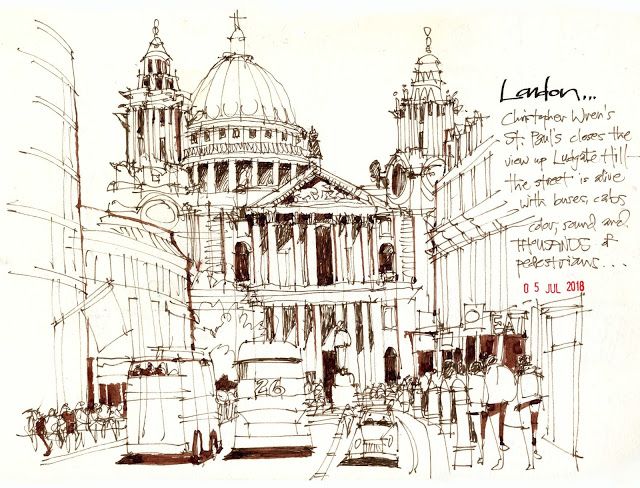 London...
Christopher Wren's
St. Paul's closes the
view up Ludgate Hill—
the street is alive
with buses, cabs,
color, sound and
THOUSANDS of
pedestrians....
05 JUL 2016
26
SA